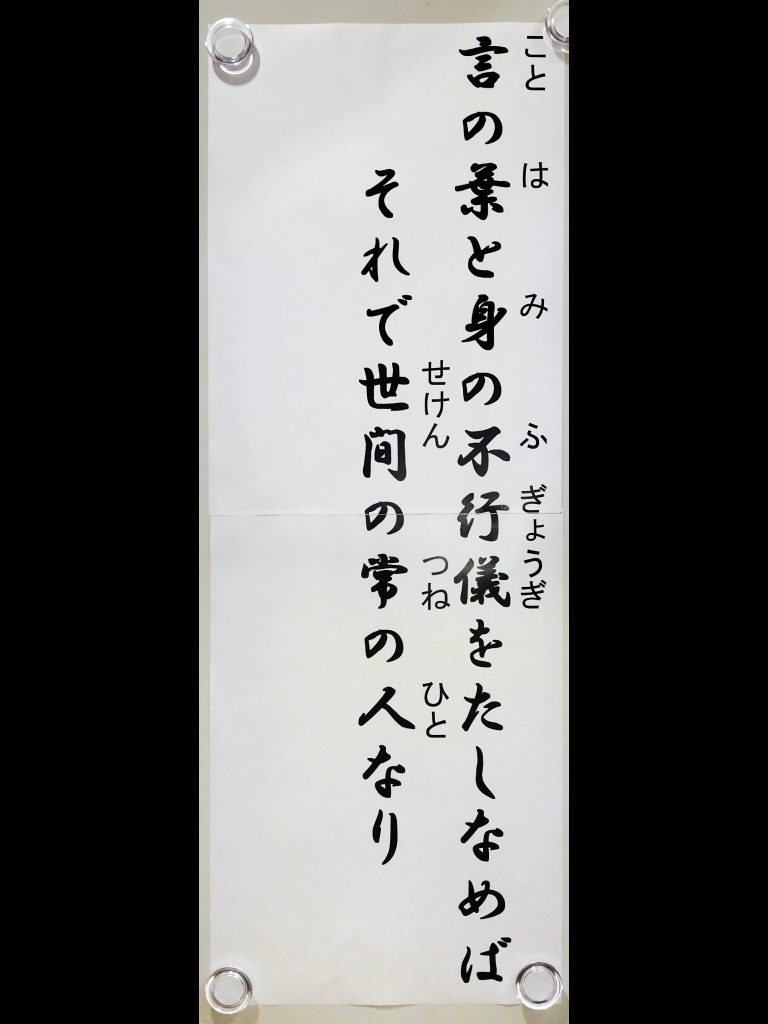 言の葉と身の不行儀をたしなめば
こと は み ふ ぎょうぎ
それで世间の常の人なり
せけん つね ひと